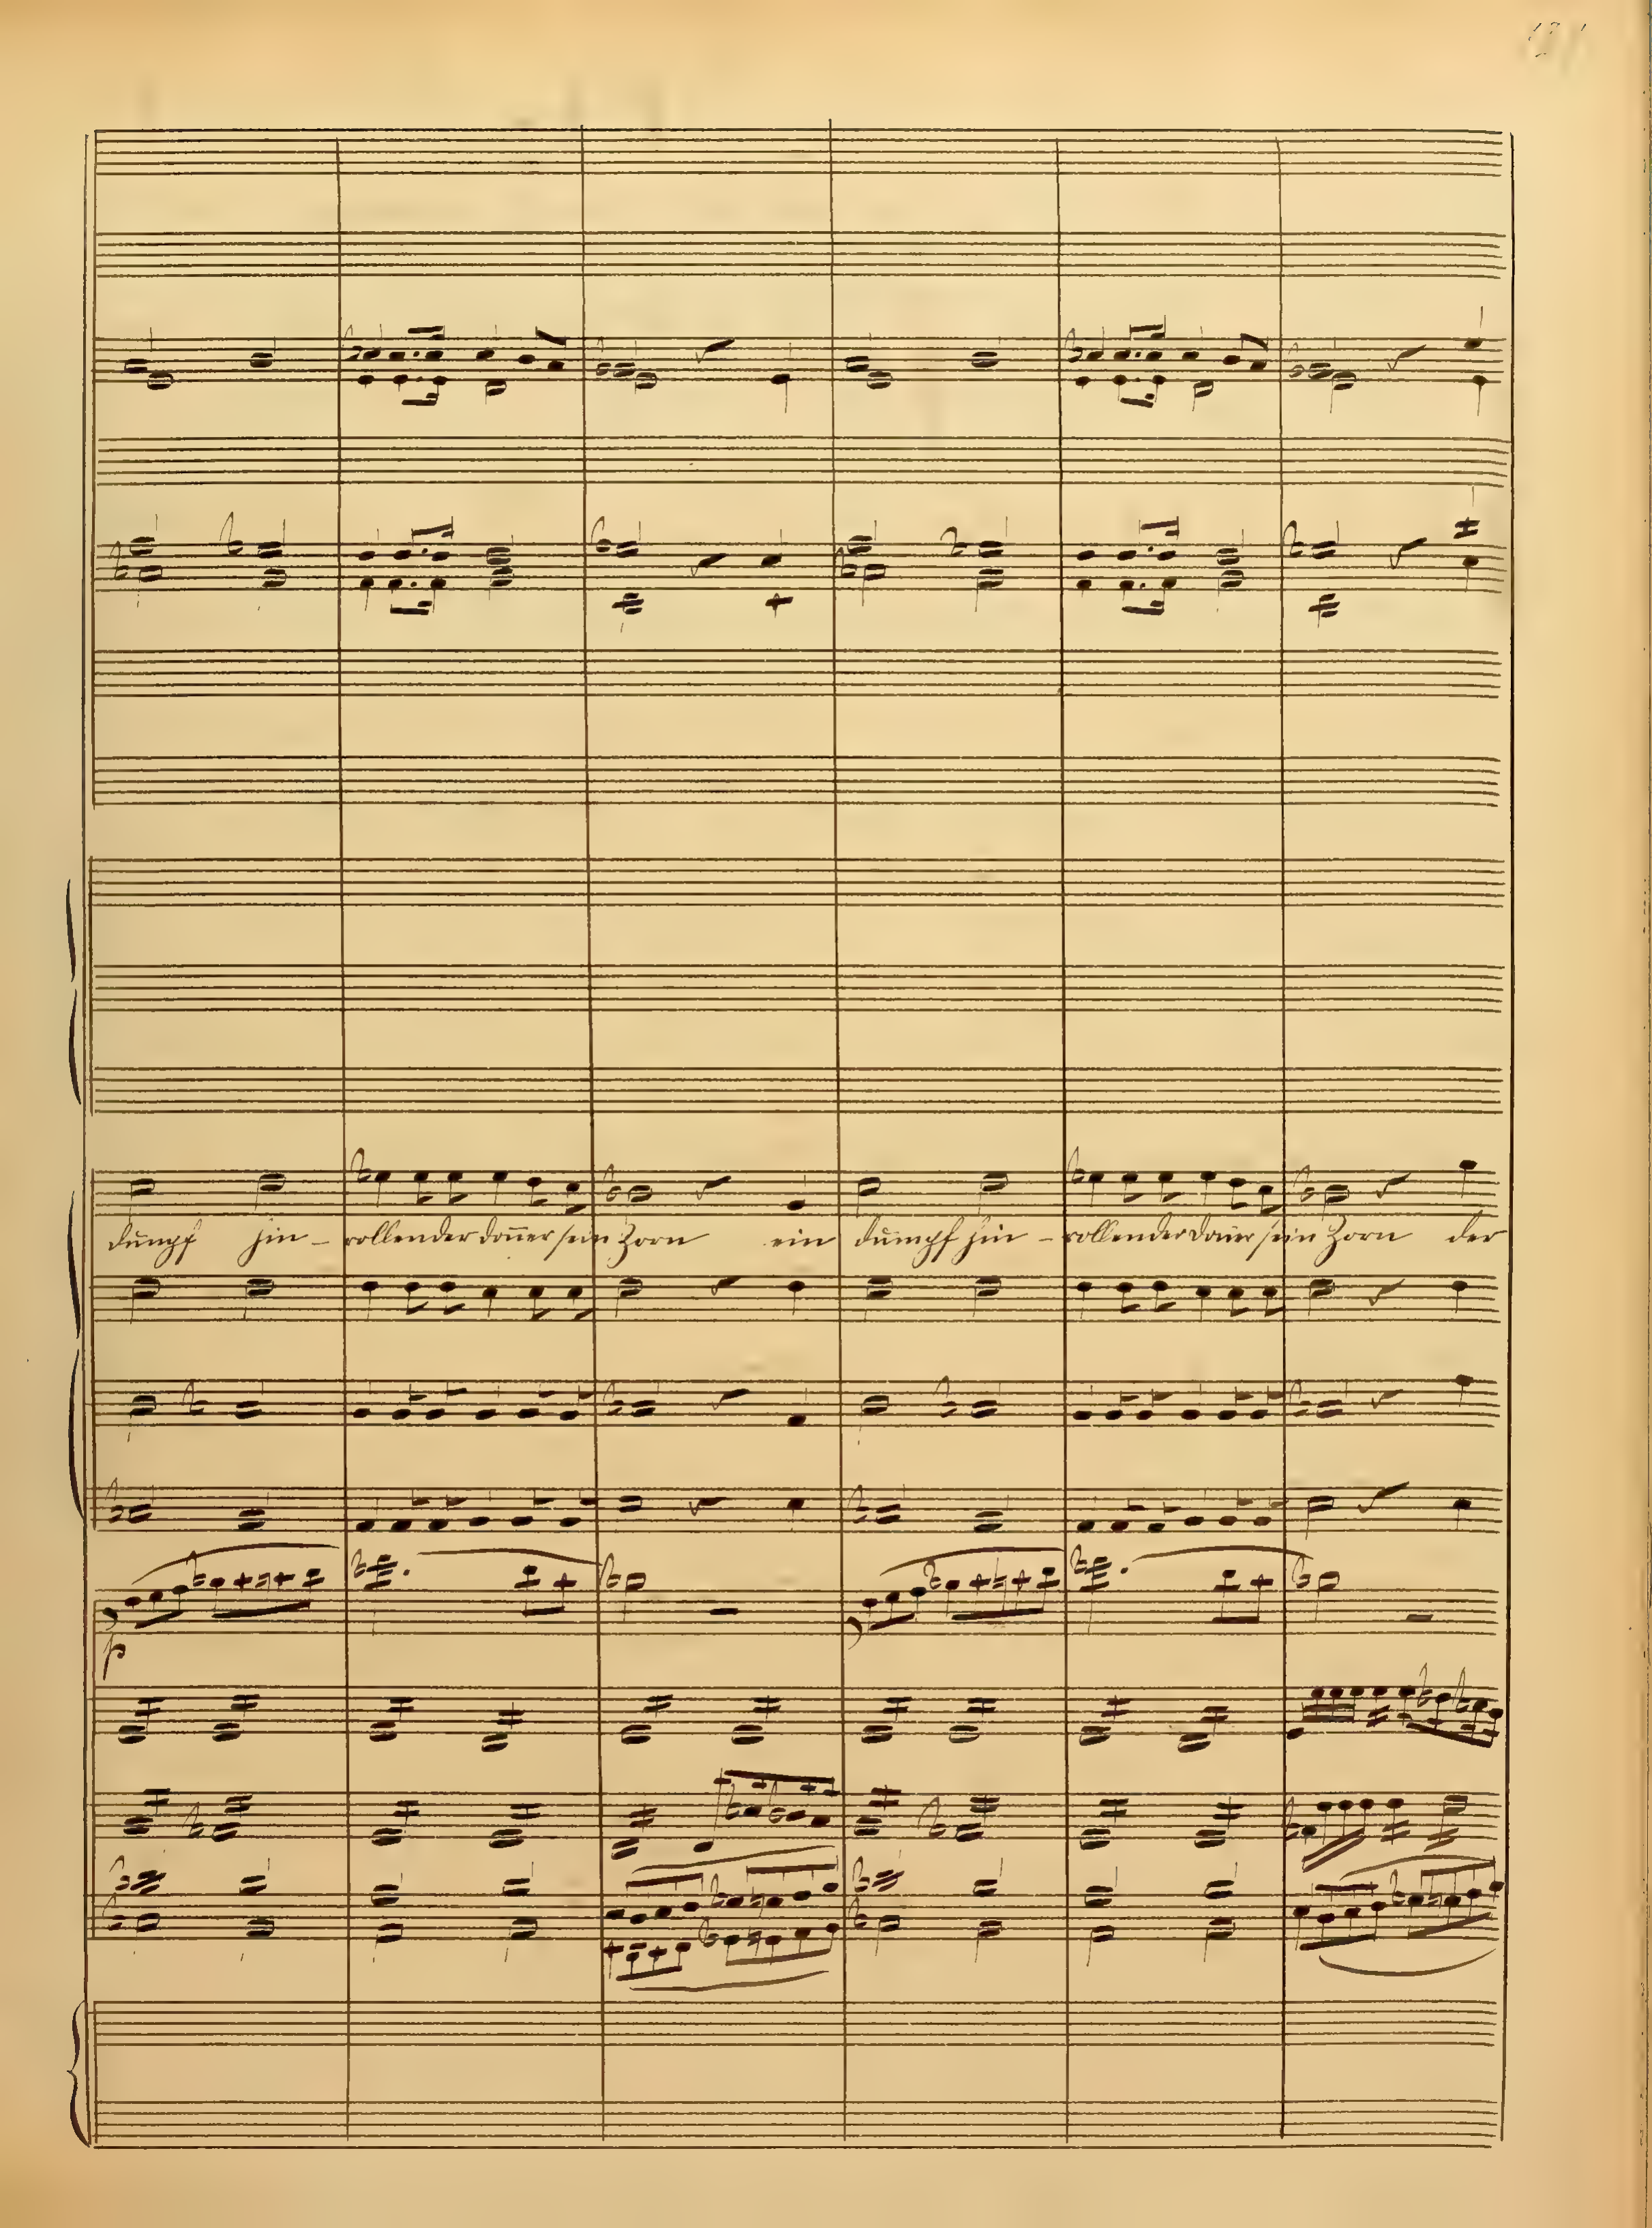 p
dumpf hin - rollender doñer sein Zorn ein dumpf hin - rollender doñer sein Zorn der